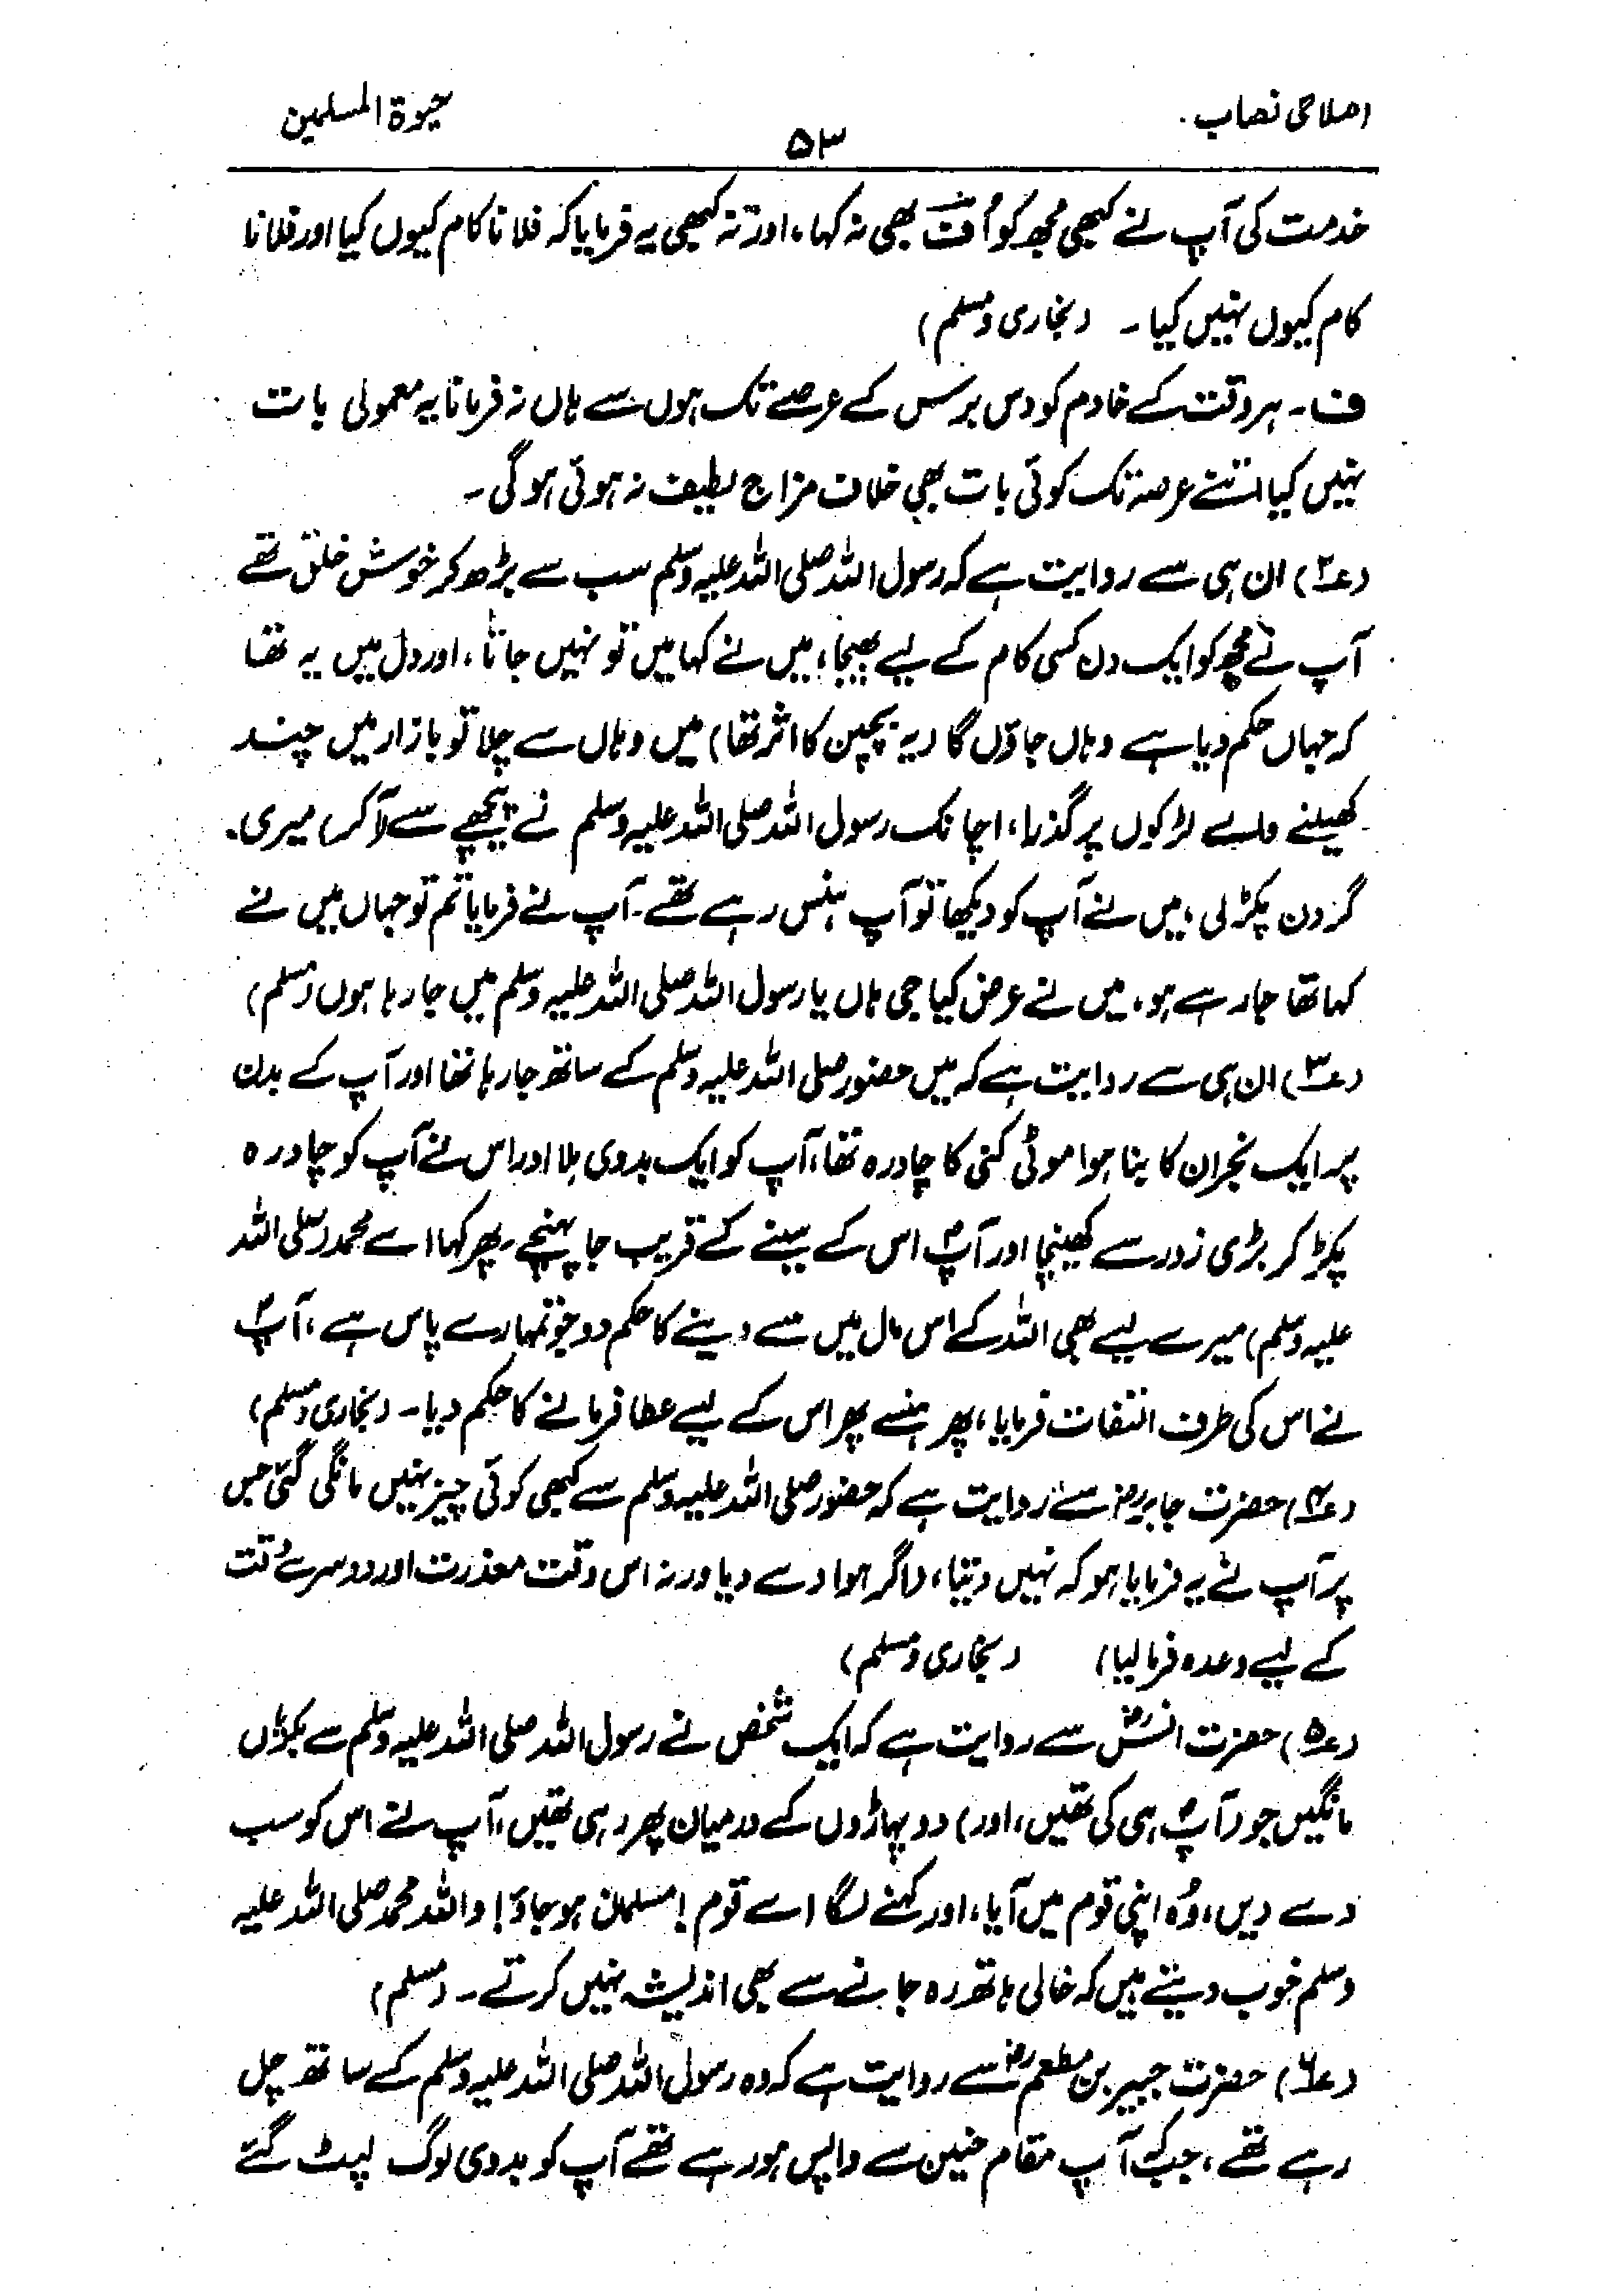 اصلاحی نصاب
۵۳
حیوۃ المسلمین
خدمت کی آپ نے کبھی مجھ کو اُف بھی نہ کہا، اور نہ کبھی یہ فرمایا کہ فلانا کام کیوں کیا اور فلانا
کام کیوں نہیں کیا۔ (بخاری ومسلم)
ف۔ ہر وقت کے خادم کو دس برس کے عرصے تک ہوں سے ہاں نہ فرمانا یہ معمولی بات
نہیں کیا اتنے عرصہ تک کوئی بات بھی خلاف مزاج لطیف نہ ہوئی ہوگی۔
(ع۲) ان ہی سے روایت ہے کہ رسول اللہ صلی اللہ علیہ وسلم سب سے بڑھ کر خوش خلق تھے
آپ نے مجھ کو ایک دن کسی کام کے لیے بھیجا، میں نے کہا میں تو نہیں جاتا، اور دل میں یہ تھا
کہ جہاں حکم دیا ہے وہاں جاؤں گا (یہ بچپن کا اثر تھا) میں وہاں سے چلا تو بازار میں چند
کھیلنے والے لڑکوں پر گذرا، اچانک رسول اللہ صلی اللہ علیہ وسلم نے پیچھے سے (آکر) میری
گردن پکڑلی، میں نے آپ کو دیکھا تو آپ ہنس رہے تھے۔ آپ نے فرمایا تم تو جہاں میں نے
کہا تھا جا رہے ہو، میں نے عرض کیا جی ہاں یا رسول اللہ صلی اللہ علیہ وسلم میں جا رہا ہوں (مسلم)
(ع۳) ان ہی سے روایت ہے کہ میں حضور صلی اللہ علیہ وسلم کے ساتھ جا رہا تھا اور آپ کے بدن
پر ایک نجران کا بنا ہوا موٹی کنی کا چادرہ تھا، آپ کو ایک بدوی ملا اور اس نے آپ کو چادرہ
پکڑ کر بڑی زور سے کھینچا اور آپؐ اس کے سینے کے قریب جا پہنچے۔ پھر کہا اے محمد (صلی اللہ
علیہ وسلم) میرے لیے بھی اللہ کے اس مال میں سے دینے کا حکم دو جو تمہارے پاس ہے، آپؐ
نے اس کی طرف التفات فرمایا، پھر ہنسے پھر اس کے لیے عطا فرمانے کا حکم دیا۔ (بخاری ومسلم)
(ع۴) حضرت جابرؓ سے روایت ہے کہ حضور صلی اللہ علیہ وسلم سے کبھی کوئی چیز نہیں مانگی گئی جس
پر آپ نے یہ فرمایا ہو کہ نہیں دیتا، (اگر ہوا دے دیا ورنہ اس وقت معذرت اور دوسرے وقت
کے لیے وعدہ فرمالیا) (بخاری ومسلم)
(ع۵) حضرت انسؓ سے روایت ہے کہ ایک شخص نے رسول اللہ صلی اللہ علیہ وسلم سے بکریاں
مانگیں جو (آپؐ ہی کی تھیں، اور) دو پہاڑوں کے درمیان پھر رہی تھیں، آپ نے اس کو سب
دے دیں، وُہ اپنی قوم میں آیا، اور کہنے لگا اے قوم! مسلمان ہو جاؤ! واللہ محمد صلی اللہ علیہ
وسلم خوب دیتے ہیں کہ خالی ہاتھ رہ جانے سے بھی اندیشہ نہیں کرتے۔ (مسلم)
(ع۶) حضرت جبیر بن مطعمؓ سے روایت ہے کہ وہ رسول اللہ صلی اللہ علیہ وسلم کے ساتھ چل
رہے تھے، جبکہ آپ مقام حنین سے واپس ہو رہے تھے آپ کو بدوی لوگ لپٹ گئے